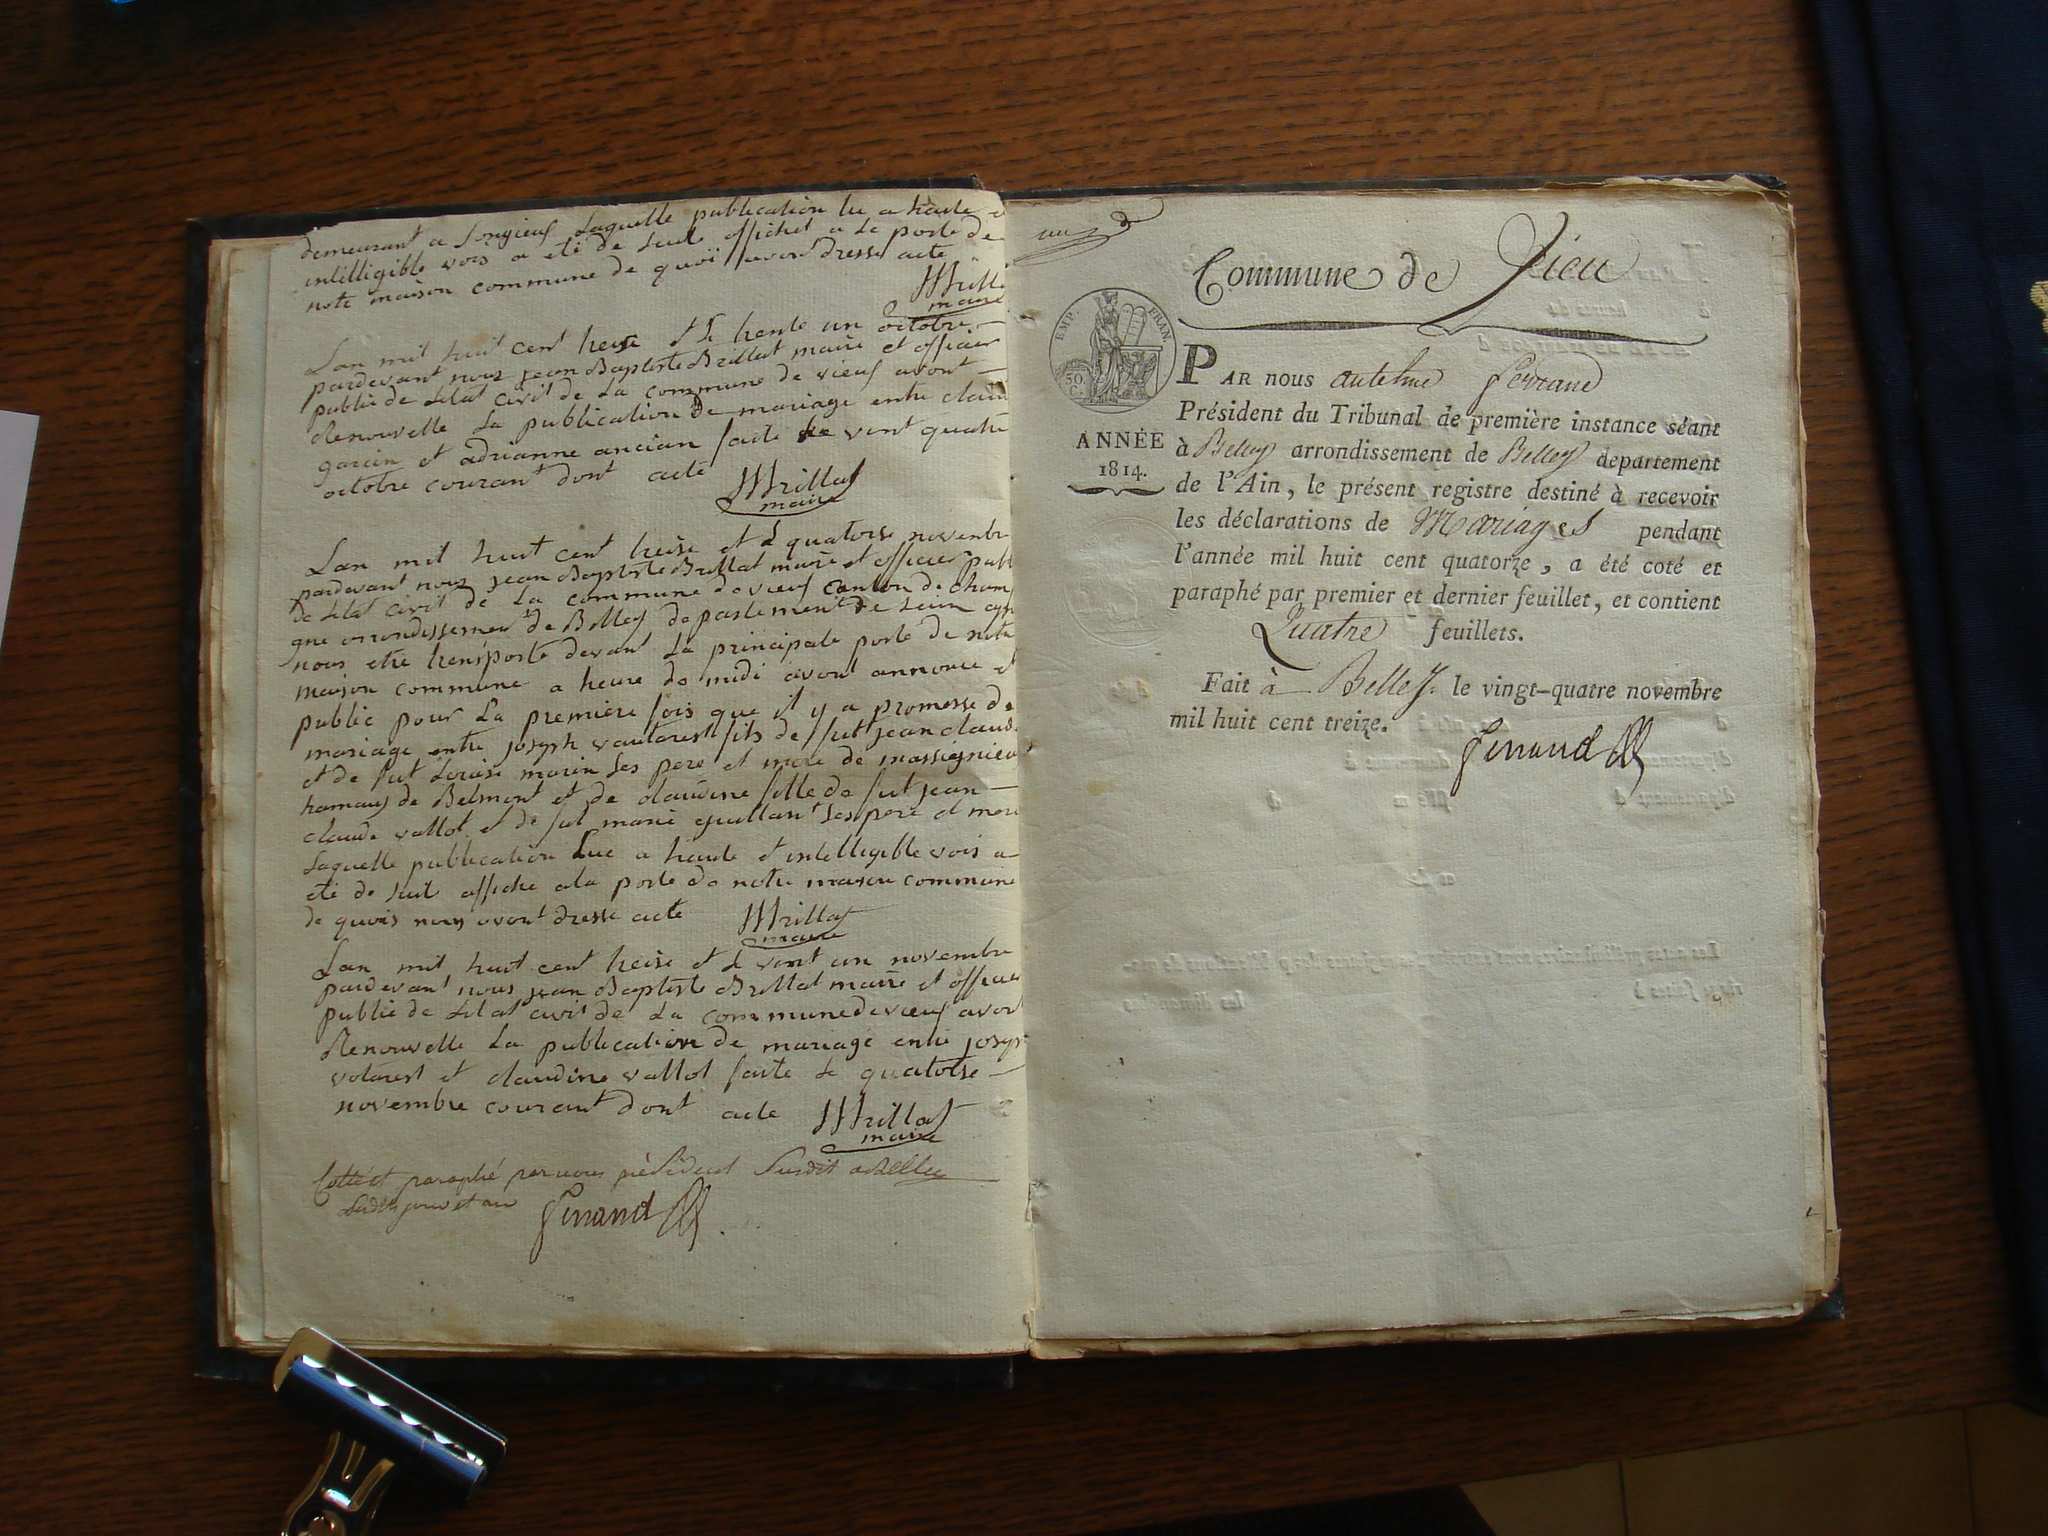 demeurant a Songieuf laquelle publication lu a haute et
intelligible vois a eté de suite affichet a la porte de
note maison commune de quoi avont dresse acte
Brillat
maire
Lan mil huit cent treise et le trente un octobre
pardevant nous jean Baptiste Brillat maire et officier
public de letat civil de la commune de vieuf avont
Renouvelle la publication de mariage entre claude
garin et adrianne ancian faite le vent quatre
octobre courant dont acte
Brillat
maire
Lan mil huit cent treise et le quatorse novembre
pardevant nous jean Baptiste Brillat maire et officier publ
de letat civil de la commune de vieuf canton de champ
gne arrondissemen de Belley departement de lain apr
nous etre transporte devant la principale porte de notre
maison commune a heure de midi avont annonce et
public pour la premiere fois que il y a promesse de
mariage entre joseph vautarest fils de fut jean claude
et de fut Louise marin ses pere et mere de massignieu
hamaus de Belmont et de claudine fille de fut jean
claude vallot et de fut marie guillant ses pere et mere
laquelle publication Lue a haute et intelligible vois a
eté de suit affiche a la porte de notre maison commune
de quois nous avont dresse acte
Brillat
maire
Lan mil huit cent treise et le vent un novembre
pardevant nous jean Baptiste Brillat maire et officier
public de letat civil de la commune de vieuf avont
Renouvelle la publication de mariage entre joseph
votarest et claudine vallot faite le quatorse
novembre courant dont acte
Brillat
maire
Cotté et paraphé par nous président susdit a Belley
lesdits jour et an
Ferrand
Commune de Vieu
EMP. FRAN.
50 C.
ANNÉE
1814.
PAR nous antelme ferrand
Président du Tribunal de première instance séant
à Belley arrondissement de Belley departement
de l'Ain, le présent registre destiné à recevoir
les déclarations de Mariages pendant
l'année mil huit cent quatorze, a été coté et
paraphé par premier et dernier feuillet, et contient
Quatre feuillets.
Fait à Belley. le vingt-quatre novembre
mil huit cent treize.
Ferrand